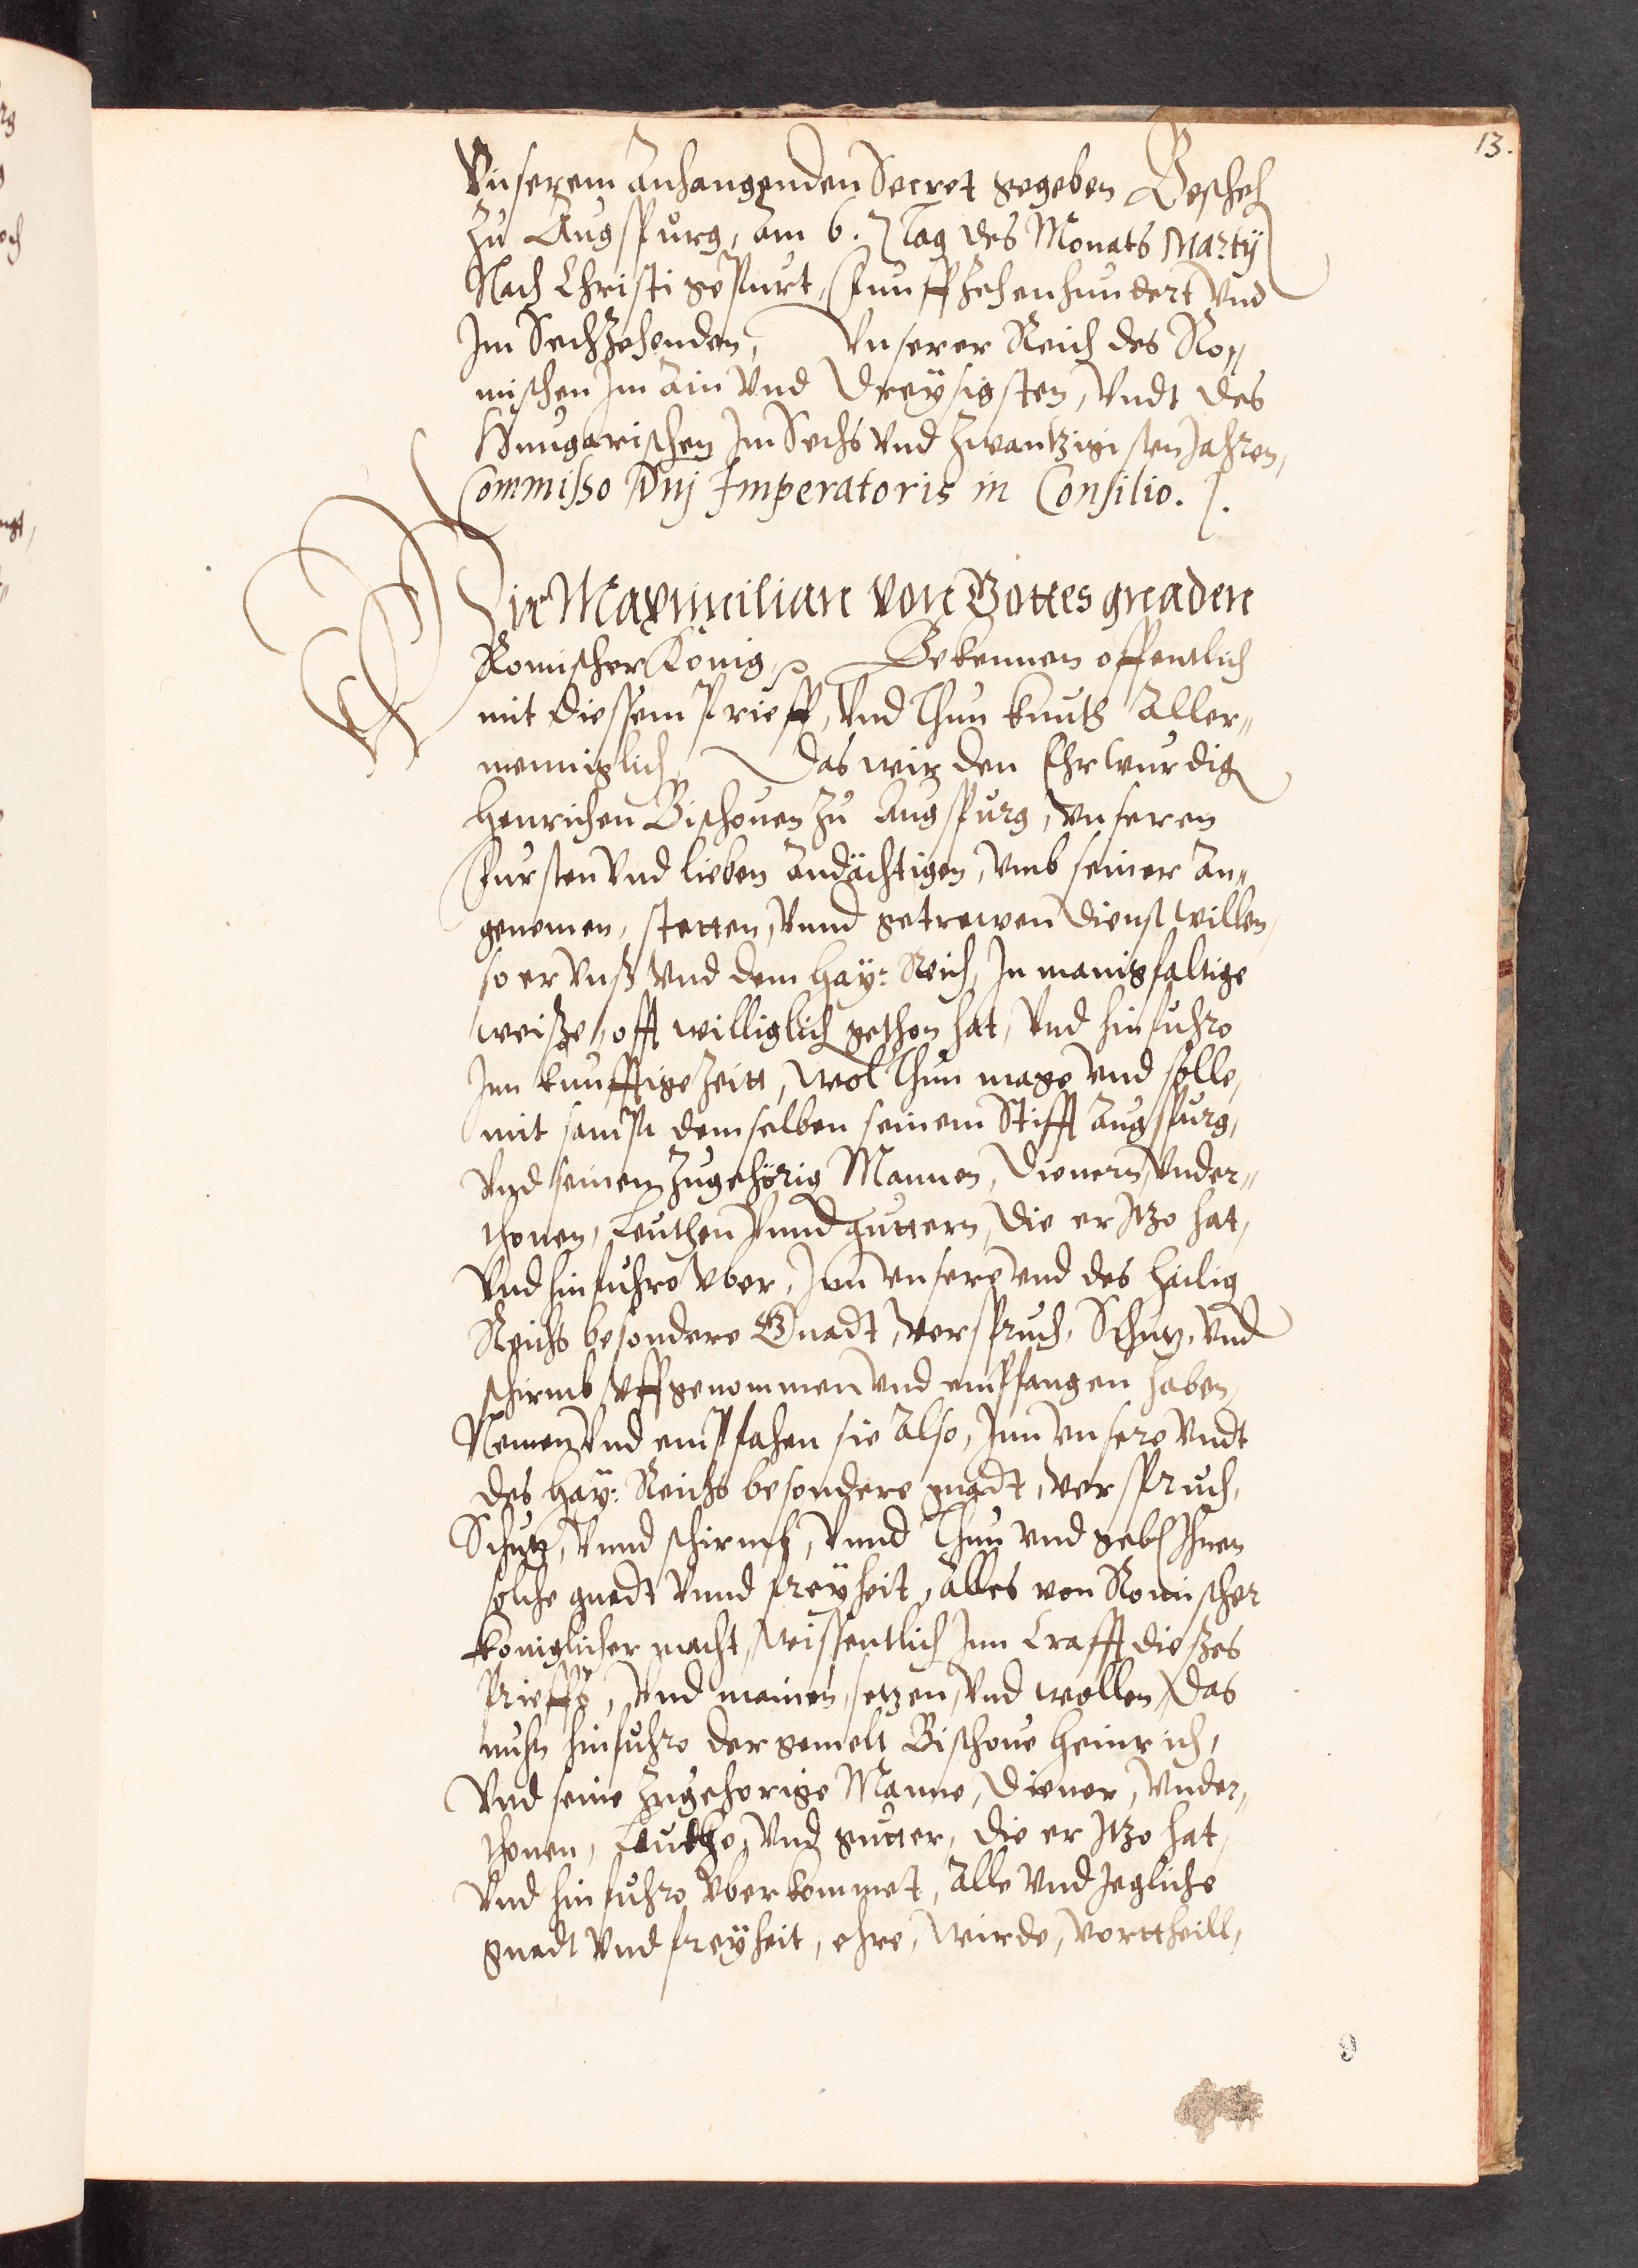 13.
Vnserem anhangenden Secret gegeben Gescheh
zu Augspurg, am 6. Tag des Monats Martÿ
Nach Christi gepurt, Funffzehenhundert Vnd
Im Sechzehenden, Vnserer Reich des Ro„
mischen Im Ain Vnd Dreÿsigsten, Vndt des
Hungarischen Im Sechs Vnd Zwantzigisten Jahren,
Commisso Dnj Imperatoris in Consilio.
Wir Maximilian Von Gottes gnaden
Romischer König, Bekennen offentlich
mit diessem Prieff, Vnd Thun kunth Aller„
menniglich, Das wir den Ehrwurdig
Henrichen Bischouen zu Augspurg, Vnseren
Fursten Vnd lieben Andächtigen, Vmb seiner An„
genemen, stetten, Vnnd getrewen Dienst willen,
so er Vnß Vnd dem Haÿ: Reich, In manigfaltige
weiße, offt williglich gethon hat, Vnd hinfuhro
Inn kunfftige Zeitt, wol Thun mage Vnd solle,
mit sampt demselben seinem Stifft Augspurg,
Vnd seinen Zugehörig Mannen, Dienern, Vnder„
thonen, Leuthen Vnnd guttern, die er Itzo hat,
Vnd hinfuhro Vber, Inn Vnsere Vnd des Hailig
Reichs besondere Gnadt, Verspruch, Schutz, Vnd
schirmb Vffgenommen Vnd empfangen haben,
Nemen Vnd empfahen sie Also, Inn Vnsere Vndt
des Haÿ: Reichs besondere gnadt, Verspruch,
Schutz, Vnnd schirmb, Vnnd Thun Vnd geb Ihnen
solche gnadt Vnnd freÿheit, Alles von Romischer
königlicher macht, wissentlich Inn Crafft dießes
Prieffs, Vnd mainen, setzen, Vnd wollen, Das
nuhn hinfuhro der gemelt Bischoue Heinrich,
Vnd seine Zugehorige Manne, Diener, Vnder„
thonen, Leuthe, Vnd gutter, die er Itzo hat,
Vnd hinfuhro Vberkommet, Alle Vnd Jegliche
gnadt Vnd freÿheit, ehre, wirde, Vorttheill,
9